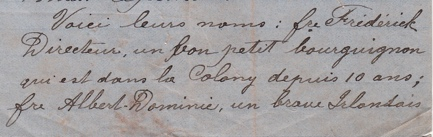 Voici leurs noms : fre Frédérick
Directeur, un bon petit bourguignon
qui est dans la Colony depuis 10 ans ;
fre Albert-Dominic, un brave Irlandais